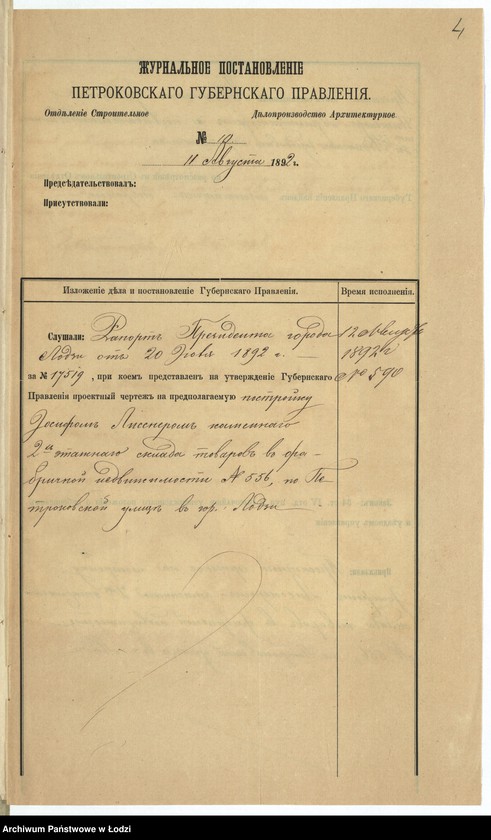 4
ЖУРНАЛЬНОЕ ПОСТАНОВЛЕНІЕ
ПЕТРОКОВСКАГО ГУБЕРНСКАГО ПРАВЛЕНІЯ.
Отдѣленіе Строительное
Дѣлопроизводство Архитектурное
№
11 Августа 1892 г.
Предсѣдательствовалъ:
Присутствовали:
Изложеніе дѣла и постановленіе Губернскаго Правленія.
Время исполненія.
Слушали: Рапортъ Президента города
Лодзи отъ 20 1892 г.
за № 17519, при коемъ представленъ на утвержденіе Губернскаго
Правленія проектный чертежъ на предполагаемую постройку
Іосифомъ каменнаго
2хъ этажнаго склада товаровъ во фа-
бричной недвижимости № 556, по Пе-
троковской улицѣ въ гор. Лодзи
12 Августа
1892 г
№ 590
Archiwum Państwowe w Łodzi